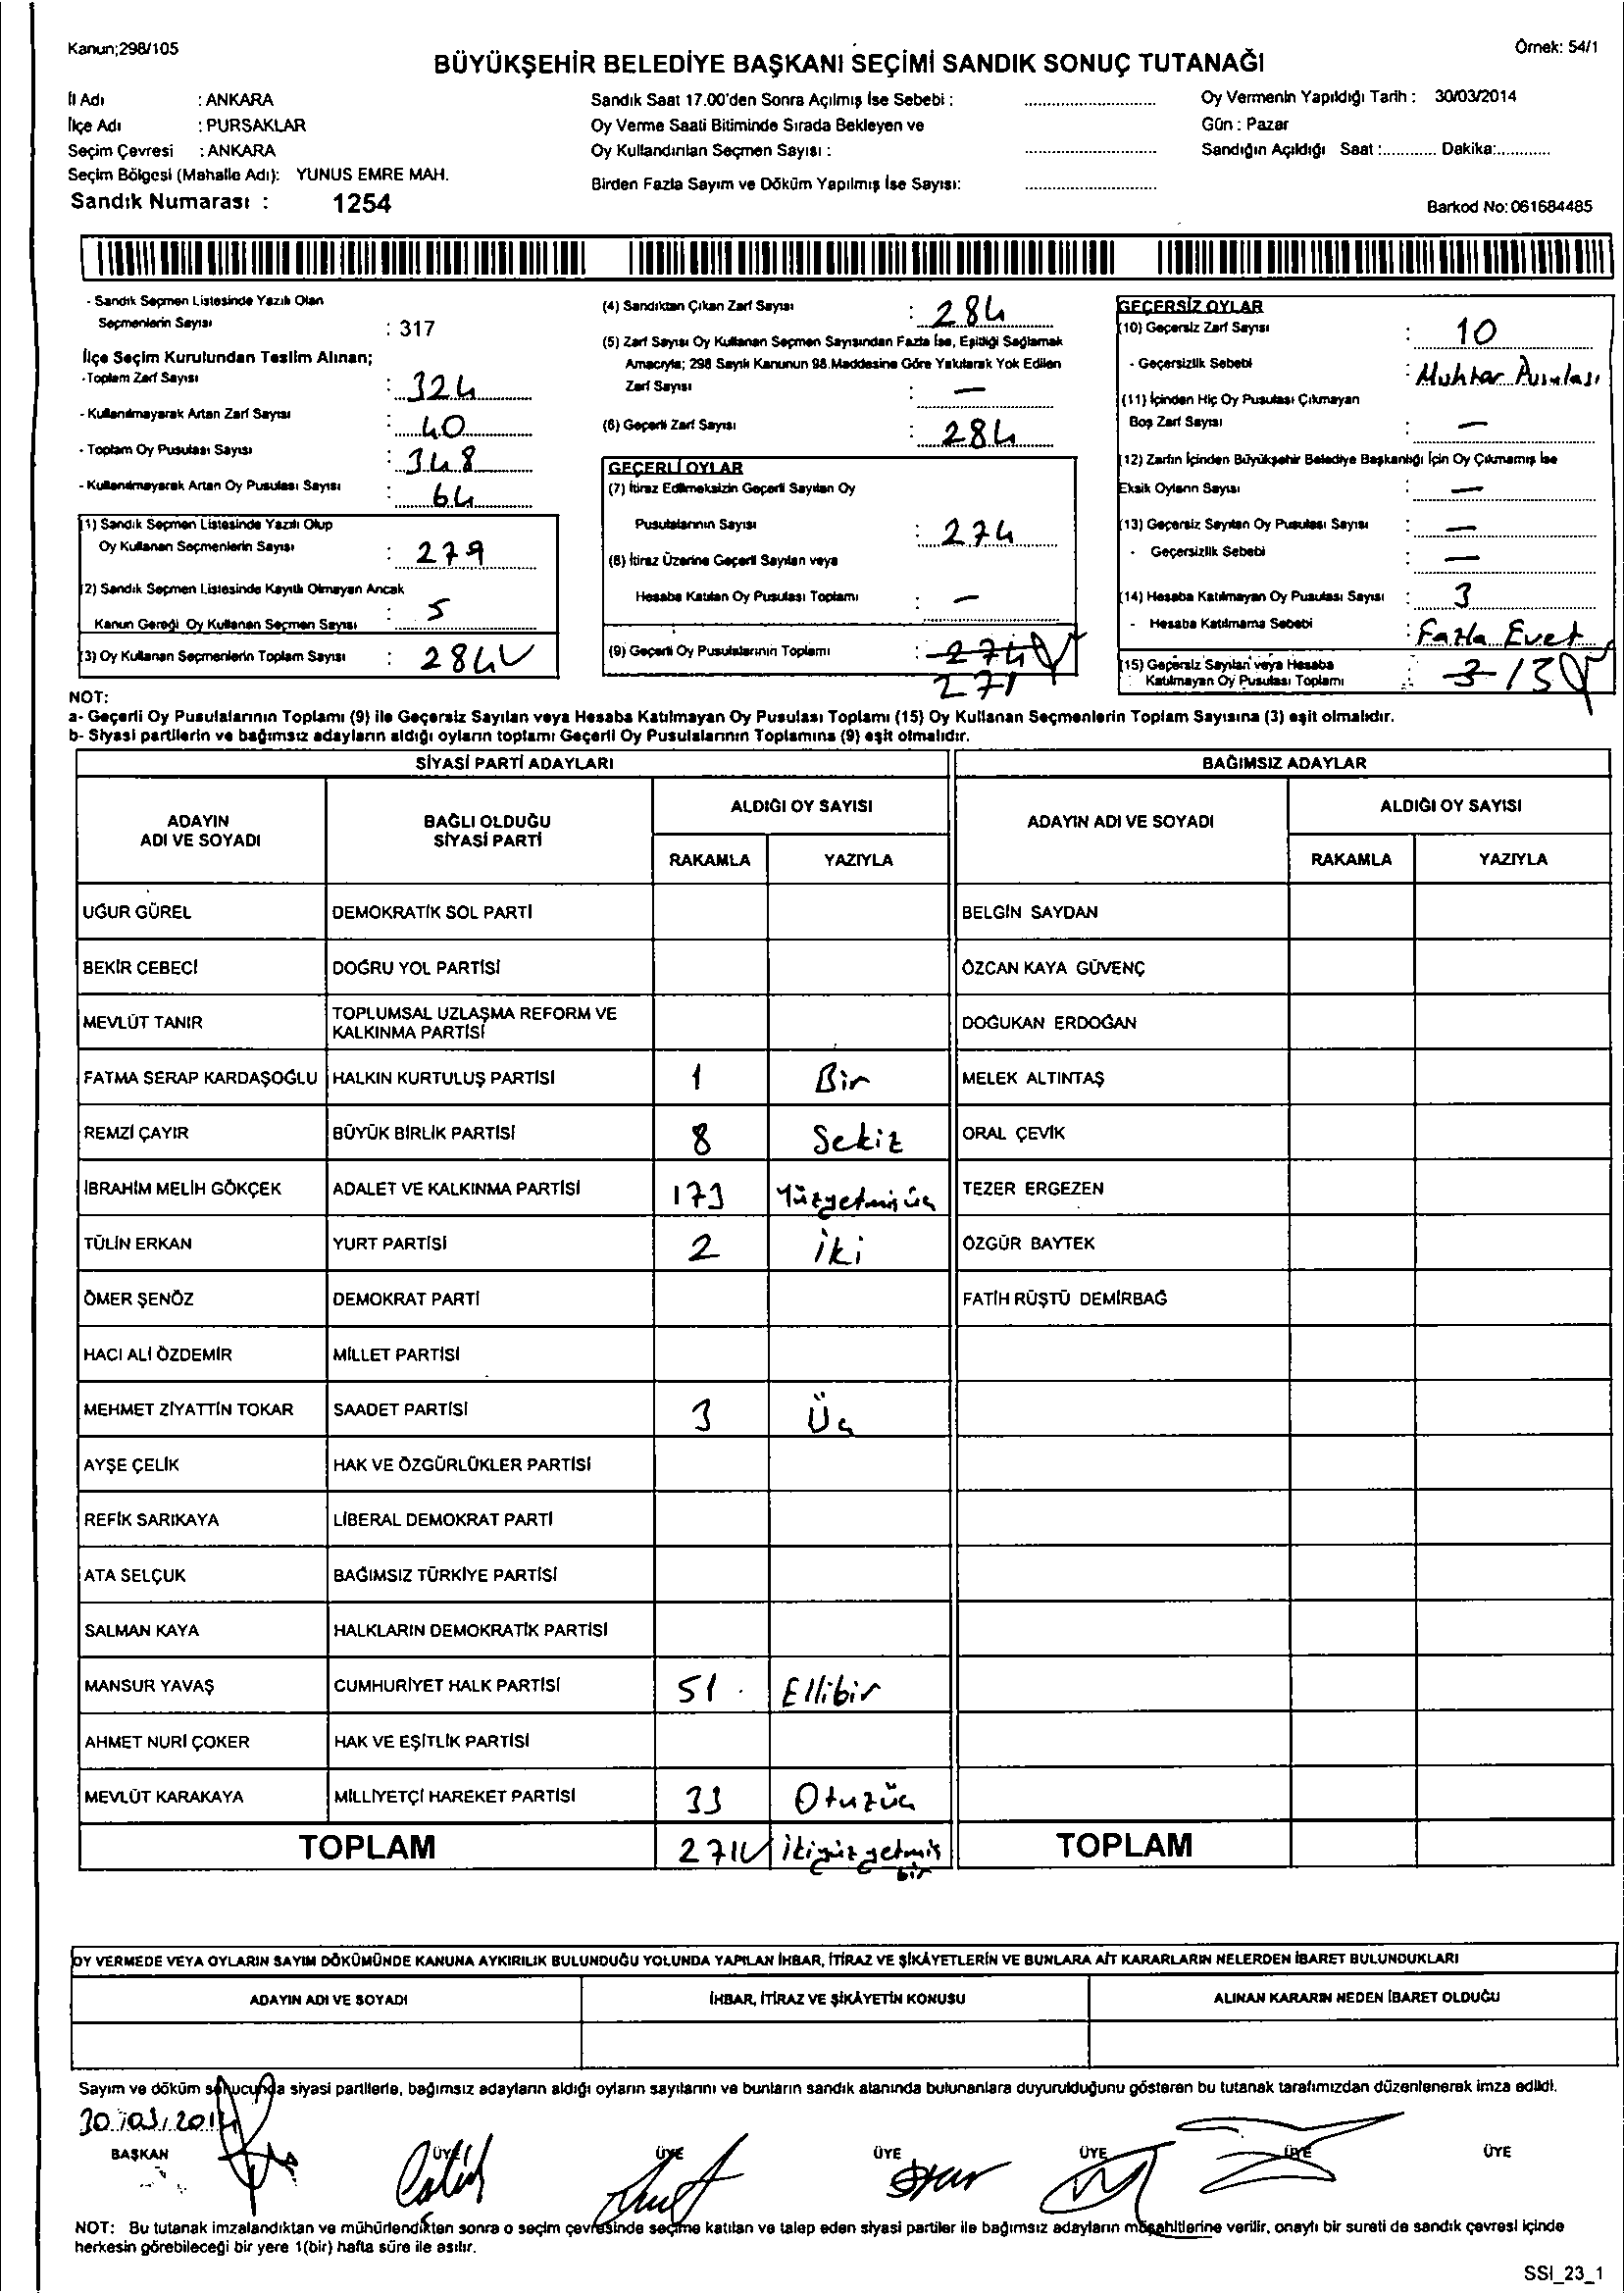 Kanun;298/105
Örnek: 54/1
BÜYÜKŞEHİR BELEDİYE BAŞKANI SEÇİMİ SANDIK SONUÇ TUTANAĞI
İl Adı : ANKARA
İlçe Adı : PURSAKLAR
Seçim Çevresi : ANKARA
Seçim Bölgesi (Mahalle Adı): YUNUS EMRE MAH.
Sandık Numarası : 1254
Sandık Saat 17.00'den Sonra Açılmış İse Sebebi :
Oy Verme Saati Bitiminde Sırada Bekleyen ve
Oy Kullandırılan Seçmen Sayısı :
Birden Fazla Sayım ve Döküm Yapılmış İse Sayısı:
Oy Vermenin Yapıldığı Tarih : 30/03/2014
Gün : Pazar
Sandığın Açıldığı Saat :............ Dakika:............
Barkod No:061684485
- Sandık Seçmen Listesinde Yazılı Olan
Seçmenlerin Sayısı : 317
İlçe Seçim Kurulundan Teslim Alınan;
-Toplam Zarf Sayısı : 324
- Kullanılmayarak Artan Zarf Sayısı : 40
- Toplam Oy Pusulası Sayısı : 348
- Kullanılmayarak Artan Oy Pusulası Sayısı : 64
(1) Sandık Seçmen Listesinde Yazılı Olup
Oy Kullanan Seçmenlerin Sayısı : 279
(2) Sandık Seçmen Listesinde Kayıtlı Olmayan Ancak
Kanun Gereği Oy Kullanan Seçmen Sayısı : 5
(3) Oy Kullanan Seçmenlerin Toplam Sayısı : 284
(4) Sandıktan Çıkan Zarf Sayısı : 284
(5) Zarf Sayısı Oy Kullanan Seçmen Sayısından Fazla İse, Eşitliği Sağlamak
Amacıyla; 298 Sayılı Kanunun 98.Maddesine Göre Yakılarak Yok Edilen
Zarf Sayısı : —
(6) Geçerli Zarf Sayısı : 284
GEÇERLİ OYLAR
(7) İtiraz Edilmeksizin Geçerli Sayılan Oy
Pusulalarının Sayısı : 274
(8) İtiraz Üzerine Geçerli Sayılan veya
Hesaba Katılan Oy Pusulası Toplamı : —
(9) Geçerli Oy Pusulalarının Toplamı : 274
271
GEÇERSİZ OYLAR
(10) Geçersiz Zarf Sayısı : 10
- Geçersizlik Sebebi : Muhtar Pusulası
(11) İçinden Hiç Oy Pusulası Çıkmayan
Boş Zarf Sayısı : —
(12) Zarfın İçinden Büyükşehir Belediye Başkanlığı İçin Oy Çıkmamış İse
Eksik Oyların Sayısı : —
(13) Geçersiz Sayılan Oy Pusulası Sayısı : —
- Geçersizlik Sebebi : —
(14) Hesaba Katılmayan Oy Pusulası Sayısı : 3
- Hesaba Katılmama Sebebi : Fazla Evet
(15) Geçersiz Sayılan veya Hesaba
Katılmayan Oy Pusulası Toplamı : 3 13
NOT:
a- Geçerli Oy Pusulalarının Toplamı (9) ile Geçersiz Sayılan veya Hesaba Katılmayan Oy Pusulası Toplamı (15) Oy Kullanan Seçmenlerin Toplam Sayısına (3) eşit olmalıdır.
b- Siyasi partilerin ve bağımsız adayların aldığı oyların toplamı Geçerli Oy Pusulalarının Toplamına (9) eşit olmalıdır.
SİYASİ PARTİ ADAYLARI BAĞIMSIZ ADAYLAR
ADAYIN ADI VE SOYADI BAĞLI OLDUĞU SİYASİ PARTİ ALDIĞI OY SAYISI ADAYIN ADI VE SOYADI ALDIĞI OY SAYISI
RAKAMLA YAZIYLA RAKAMLA YAZIYLA
UĞUR GÜREL DEMOKRATİK SOL PARTİ BELGİN SAYDAN
BEKİR CEBECİ DOĞRU YOL PARTİSİ ÖZCAN KAYA GÜVENÇ
MEVLÜT TANIR TOPLUMSAL UZLAŞMA REFORM VE KALKINMA PARTİSİ DOĞUKAN ERDOĞAN
FATMA SERAP KARDAŞOĞLU HALKIN KURTULUŞ PARTİSİ 1 Bir MELEK ALTINTAŞ
REMZİ ÇAYIR BÜYÜK BİRLİK PARTİSİ 8 Sekiz ORAL ÇEVİK
İBRAHİM MELİH GÖKÇEK ADALET VE KALKINMA PARTİSİ 173 Yüzyetmişüç TEZER ERGEZEN
TÜLİN ERKAN YURT PARTİSİ 2 İki ÖZGÜR BAYTEK
ÖMER ŞENÖZ DEMOKRAT PARTİ FATİH RÜŞTÜ DEMİRBAĞ
HACI ALİ ÖZDEMİR MİLLET PARTİSİ
MEHMET ZİYATTİN TOKAR SAADET PARTİSİ 3 Üç
AYŞE ÇELİK HAK VE ÖZGÜRLÜKLER PARTİSİ
REFİK SARIKAYA LİBERAL DEMOKRAT PARTİ
ATA SELÇUK BAĞIMSIZ TÜRKİYE PARTİSİ
SALMAN KAYA HALKLARIN DEMOKRATİK PARTİSİ
MANSUR YAVAŞ CUMHURİYET HALK PARTİSİ 51 Ellibir
AHMET NURİ ÇOKER HAK VE EŞİTLİK PARTİSİ
MEVLÜT KARAKAYA MİLLİYETÇİ HAREKET PARTİSİ 33 Otuzüç
TOPLAM 271 ikiyüzyetmiş bir TOPLAM
OY VERMEDE VEYA OYLARIN SAYIM DÖKÜMÜNDE KANUNA AYKIRILIK BULUNDUĞU YOLUNDA YAPILAN İHBAR, İTİRAZ VE ŞİKÂYETLERİN VE BUNLARA AİT KARARLARIN NELERDEN İBARET BULUNDUKLARI
ADAYIN ADI VE SOYADI İHBAR, İTİRAZ VE ŞİKÂYETİN KONUSU ALINAN KARARIN NEDEN İBARET OLDUĞU
Sayım ve döküm sonucunda siyasi partilerle, bağımsız adayların aldığı oyların sayılarını ve bunların sandık alanında bulunanlara duyurulduğunu gösteren bu tutanak tarafımızdan düzenlenerek imza edildi.
30/03/2014
BAŞKAN ÜYE ÜYE ÜYE ÜYE ÜYE ÜYE
NOT: Bu tutanak imzalandıktan ve mühürlendikten sonra o seçim çevresinde seçime katılan ve talep eden siyasi partiler ile bağımsız adayların müşahitlerine verilir, onaylı bir sureti de sandık çevresi içinde
herkesin görebileceği bir yere 1(bir) hafta süre ile asılır.
SSI_23_1